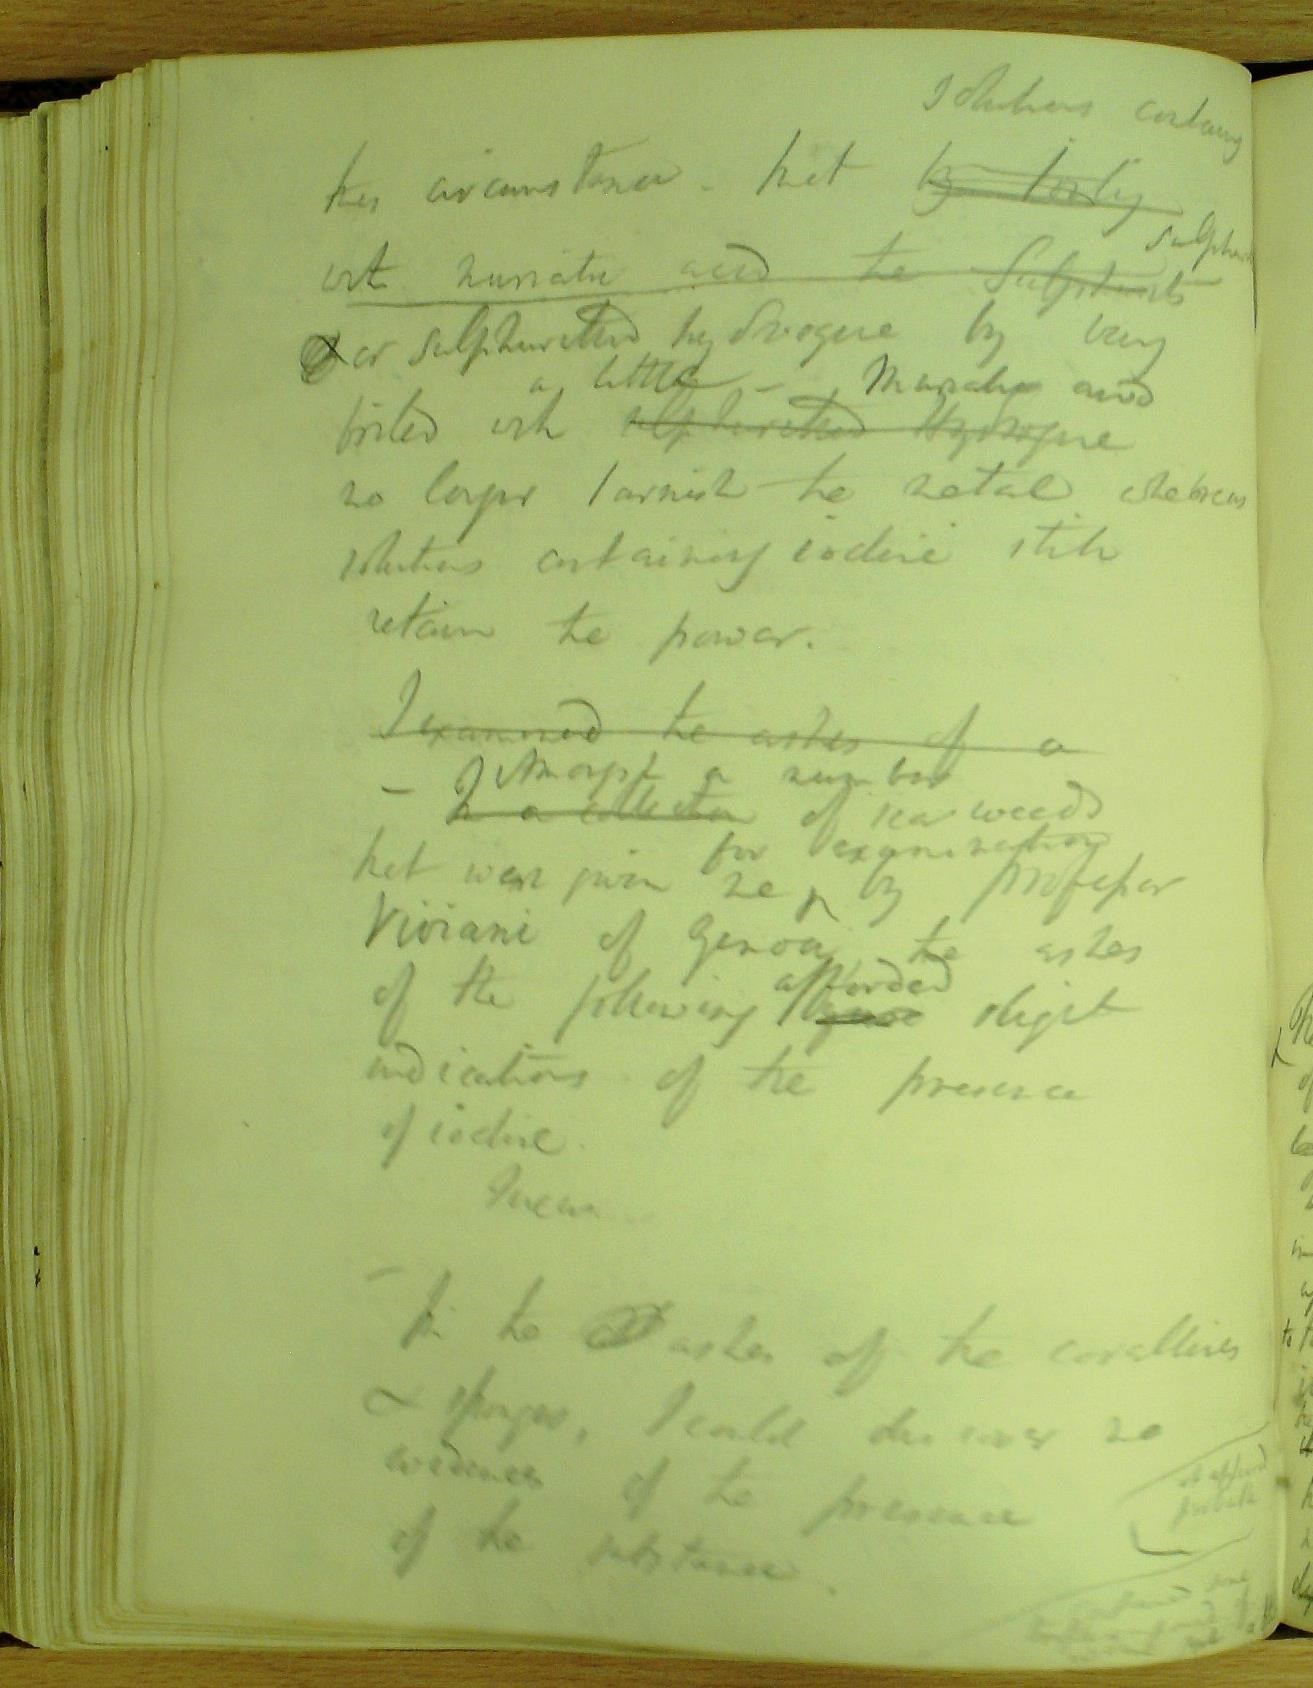 solutions containing
this circumstance. that by boiling
sulphurets
with muriatic acid the Sulphurets
or sulphuretted hydrogene by being
a little - Muriatic acid
boiled with sulphuretted Hydrogene
no longer tarnish the metal whereas
solutions containing iodine still
retain the power.
I examined the ashes of a
- Amongst a number
In a collection of sea weeds
for examination
that were given me by Professor
Viviani of Genoa, the ashes
afforded
of the following gave slight
indications of the presence
of iodine.
Fucus
- In the ashes of the corallines
& sponges, I could discover no
evidences of the presence
of the substance.